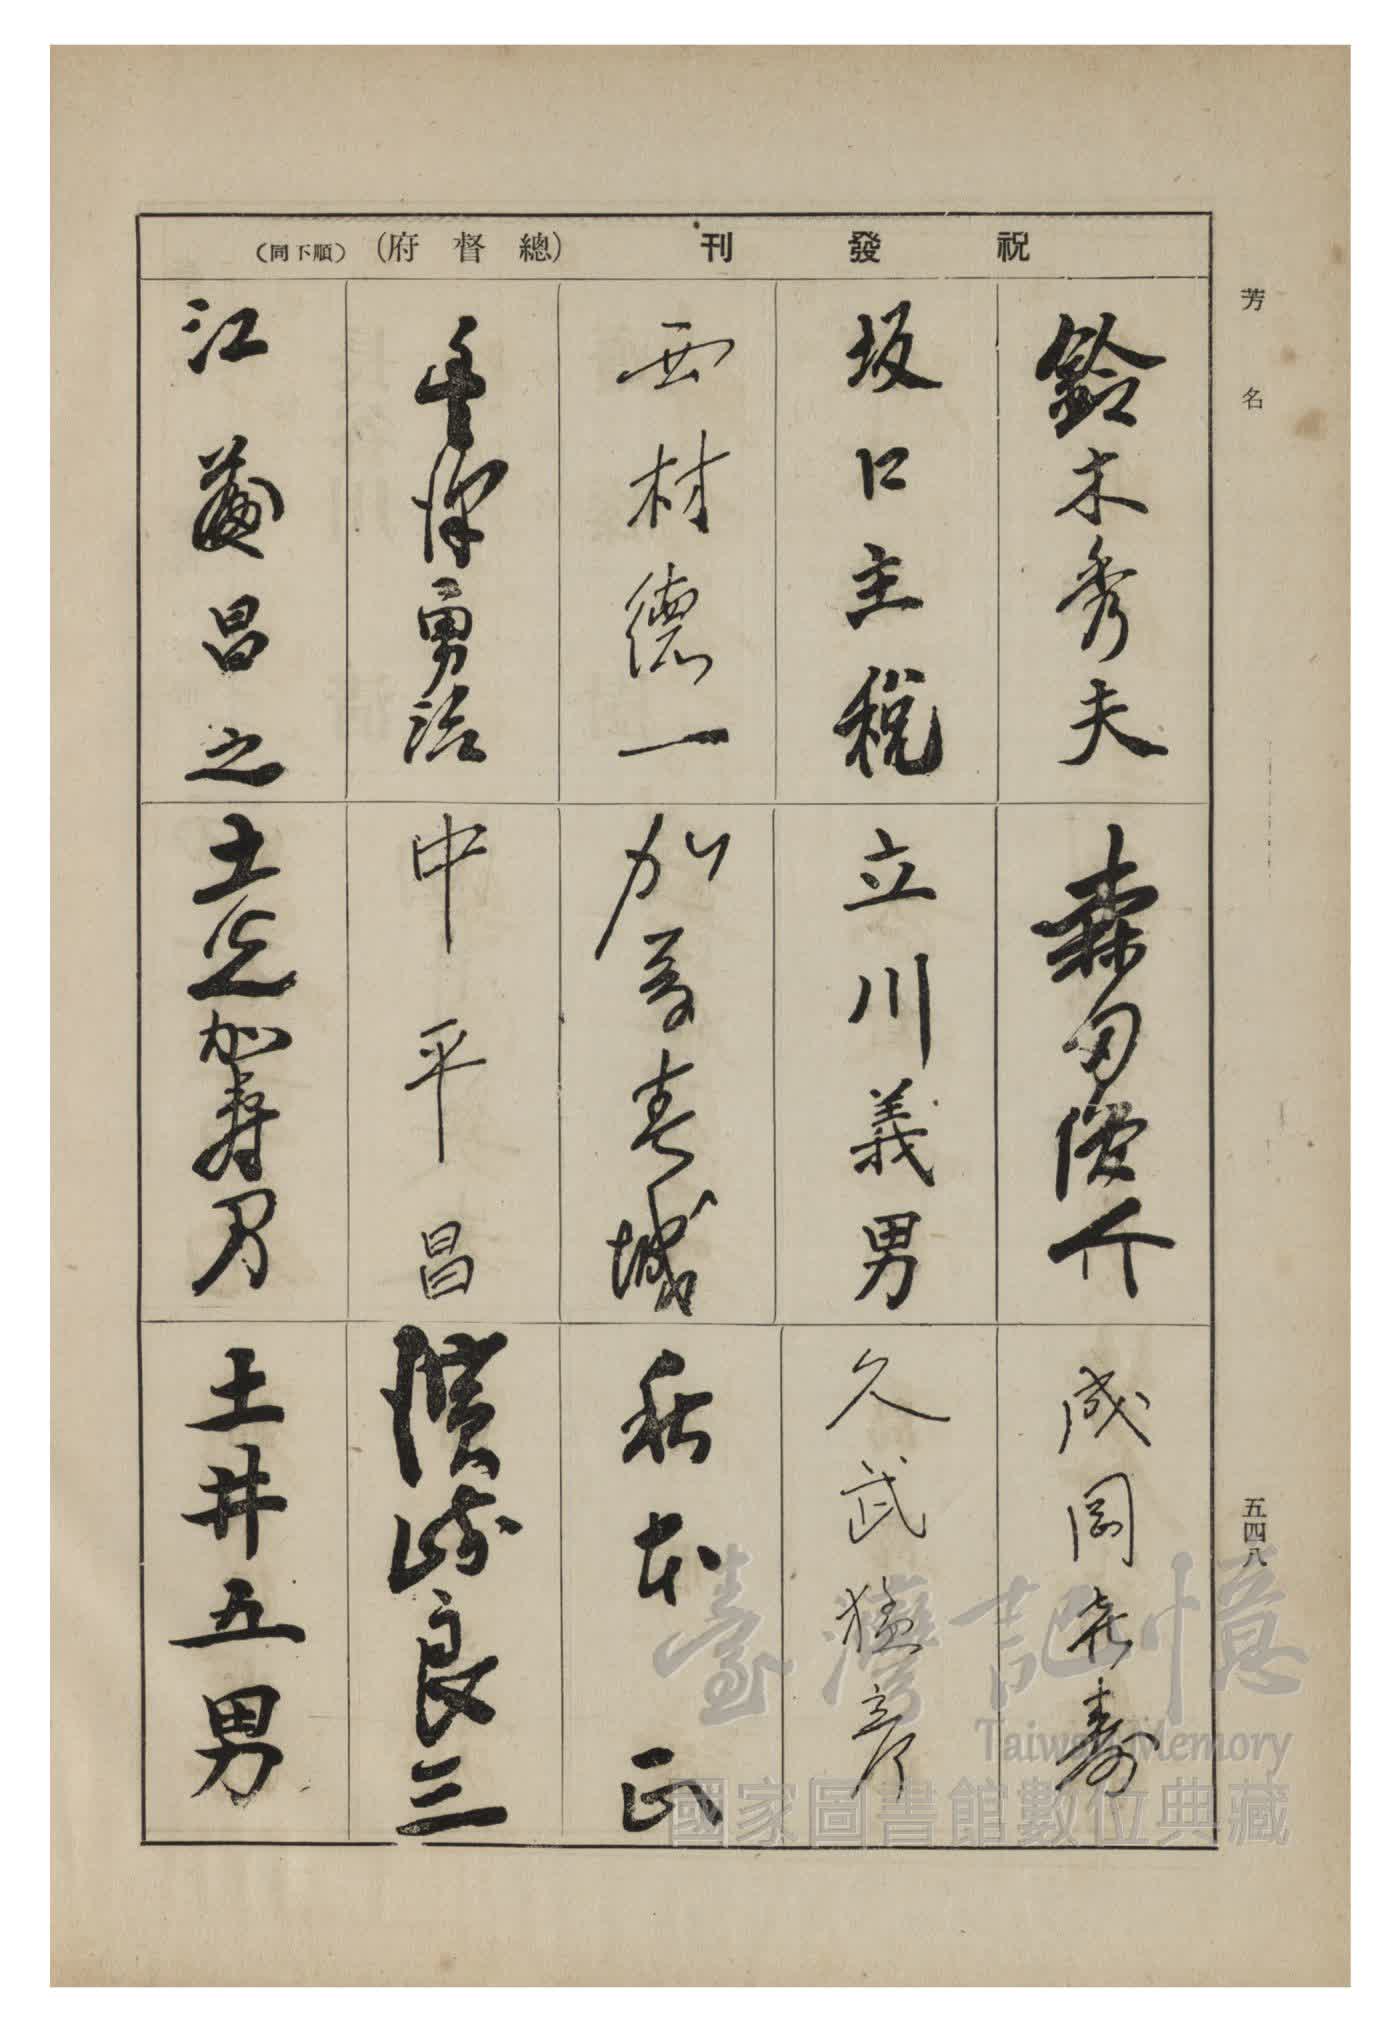 芳名
祝發刊(總督府)(順下同)
鈴木秀夫
坂口主税
西村德一
勇治
江藤昌之
森田俊介
立川義男
加藤春城
中平昌
土光加壽男
成岡壽
久武猛彦
秋本正
濱崎良三
土井五男
五四八
臺灣記憶
Taiwan Memory
國家圖書館數位典藏